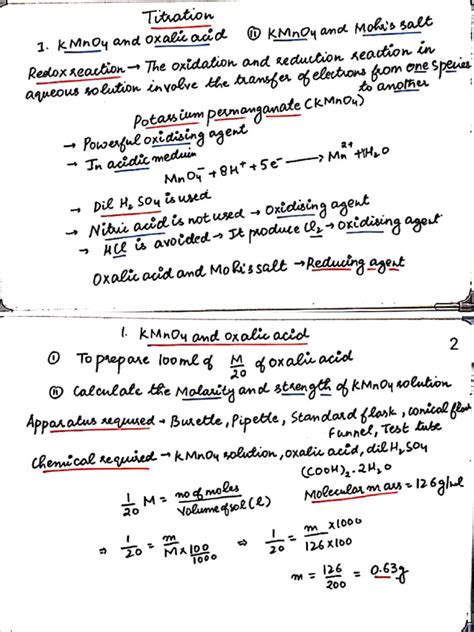 Titration
1. KMnO4 and oxalic acid (ii) KMnO4 and Mohr's salt
Redox reaction → The oxidation and reduction reaction in
aqueous solution involve the transfer of electrons from one species
to another
Potassium permanganate (KMnO4)
→ Powerful oxidising agent
→ In acidic medium
MnO4⁻ + 8H⁺ + 5e⁻ → Mn²⁺ + 4H2O
→ Dil H2SO4 is used
→ Nitric acid is not used → Oxidising agent
→ HCl is avoided → It produce Cl2 → Oxidising agent
Oxalic acid and Mohr's salt → Reducing agent
1. KMnO4 and oxalic acid 2
(i) To prepare 100ml of M/20 of oxalic acid
(ii) Calculate the Molarity and strength of KMnO4 solution
Apparatus required → Burette, Pipette, Standard flask, conical flask
Funnel, Test tube
Chemical required → KMnO4 solution, oxalic acid, dil H2SO4
(COOH)2·2H2O
1/20 M = no of moles / Volume of sol (l) Molecular mass = 126 g/mol
⇒ 1/20 = m / M × 100/1000 ⇒ 1/20 = m × 1000 / 126 × 100
m = 126/200 = 0.63g